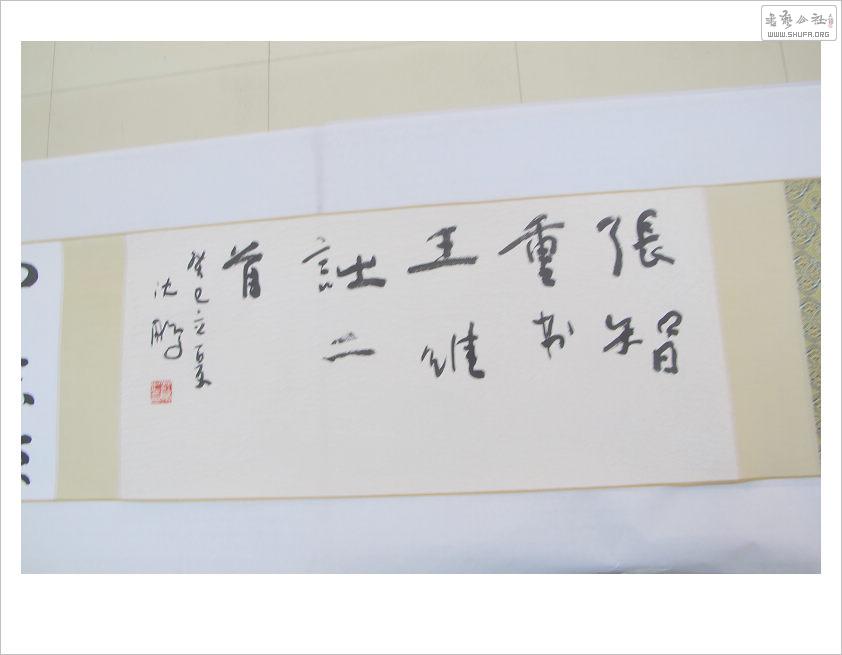 書藝公社
WWW.SHUFA.ORG
張智
重书
王維
詩二
首
癸巳立夏
沈鵬